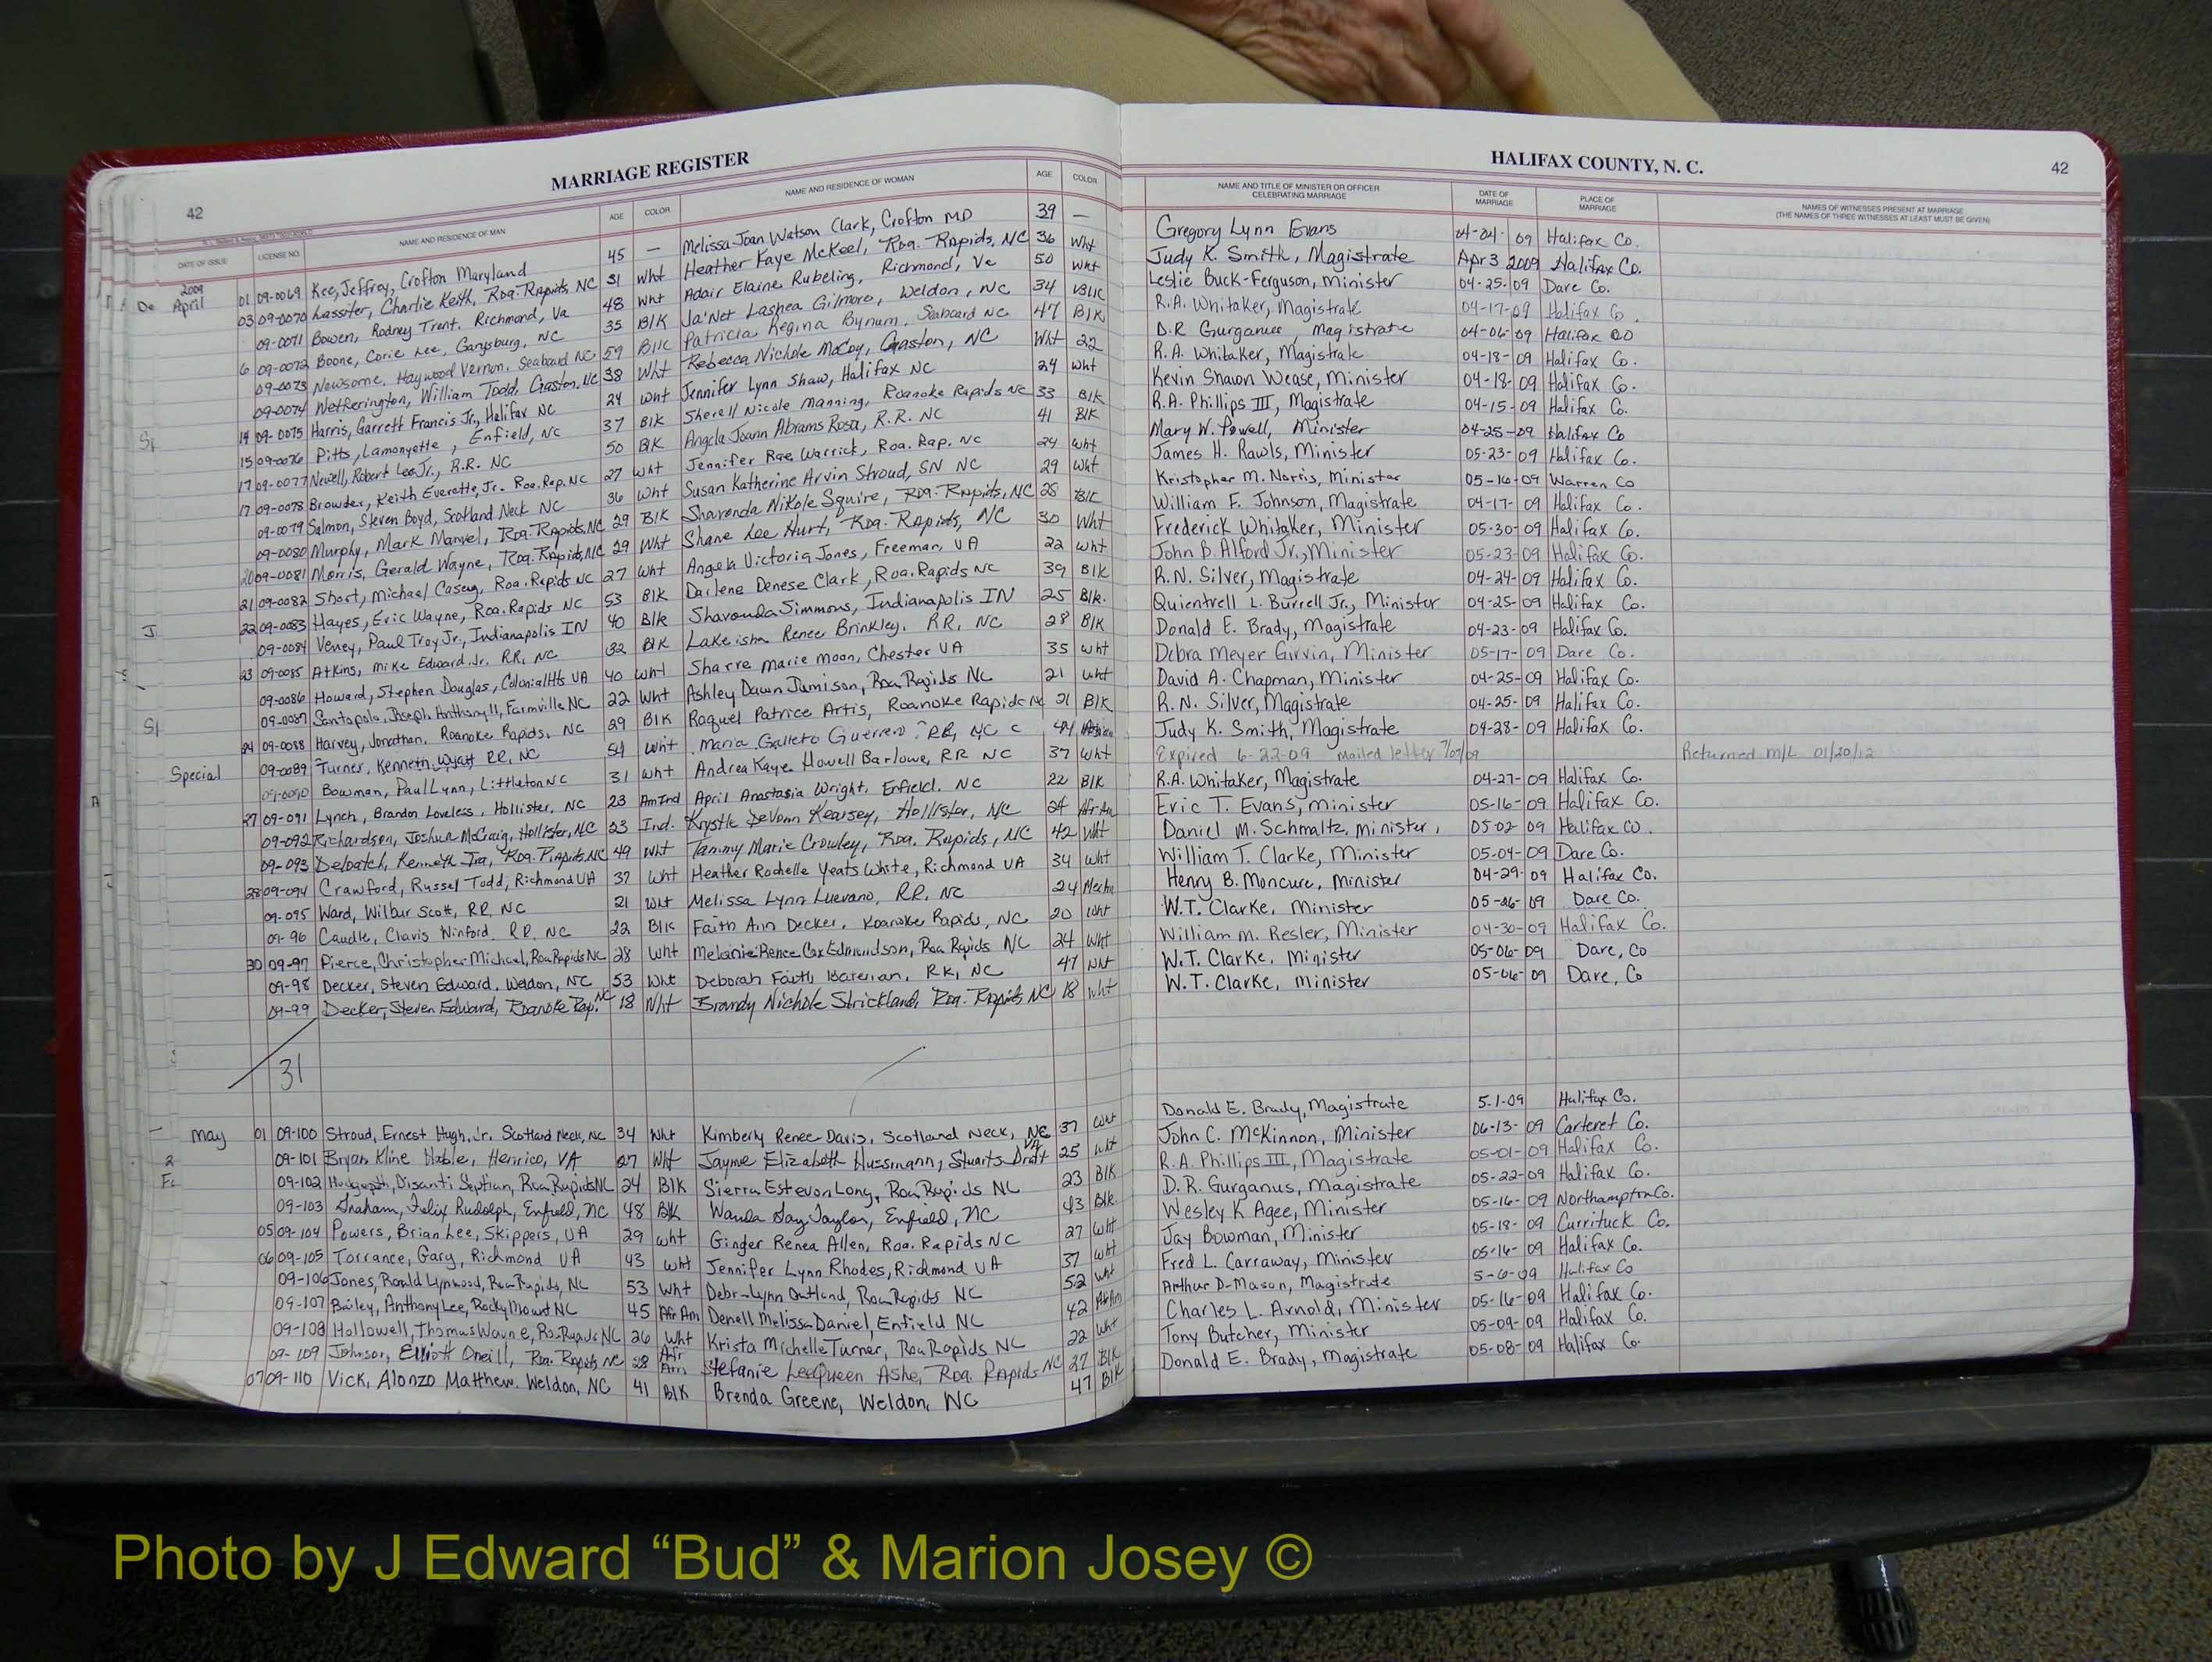 MARRIAGE REGISTER
42
DATE OF ISSUE LICENSE NO. NAME AND RESIDENCE OF MAN AGE COLOR NAME AND RESIDENCE OF WOMAN AGE COLOR
2009
De April 01 09-0069 Kee, Jeffrey, Crofton Maryland 45 — Melissa Joan Watson Clark, Crofton MD 39 —
03 09-0070 Lassiter, Charlie Keith, Roa. Rapids, NC 31 Wht Heather Faye McKeel, Roa. Rapids, NC 36 Wht
09-0071 Bowen, Rodney Trent. Richmond, Va 48 Wht Adair Elaine Rubeling, Richmond, Va 50 Wht
6 09-0072 Boone, Corie Lee, Garysburg, NC 35 Blk Ja'Net Lashea Gilmore, Weldon, NC 34 Blk
09-0073 Newsome, Haywood Vernon, Seaboard NC 59 Blk Patricia Regina Bynum, Seaboard NC 47 Blk
09-0074 Wetherington, William Todd, Gaston, NC 38 Wht Rebecca Nichole McCoy, Gaston, NC Wht 22
14 09-0075 Harris, Garrett Francis Jr., Halifax NC 24 Wht Jennifer Lynn Shaw, Halifax NC 24 Wht
15 09-0076 Pitts, Lamonyette, Enfield, NC 37 Blk Sherell Nicole Manning, Roanoke Rapids NC 33 Blk
17 09-0077 Newell, Robert Lee Jr., R.R. NC 50 Blk Angela Joann Abrams Ross, R.R. NC 41 Blk
17 09-0078 Browder, Keith Everette, Jr. Roa. Rap. NC 27 Wht Jennifer Rae Warrick, Roa. Rap. NC 24 Wht
09-0079 Salmon, Steven Boyd, Scotland Neck NC 36 Wht Susan Katherine Arvin Stroud, SN NC 29 Wht
09-0080 Murphy, Mark Manvel, Roa. Rapids, NC 29 Blk Shavonda Nikole Squire, Roa. Rapids, NC 28 Blk
20 09-0081 Morris, Gerald Wayne, Roa. Rapids, NC 29 Wht Shane Lee Hurt, Roa. Rapids, NC 30 Wht
21 09-0082 Short, Michael Casey, Roa. Rapids NC 27 Wht Angela Victoria Jones, Freeman, VA 22 Wht
22 09-0083 Hayes, Eric Wayne, Roa. Rapids NC 53 Blk Darlene Denese Clark, Roa. Rapids NC 39 Blk
09-0084 Veney, Paul Troy Jr., Indianapolis IN 40 Blk Shavonda Simmons, Indianapolis IN 25 Blk.
23 09-0085 Atkins, Mike Edward Jr. RR, NC 32 Blk Lakeisha Renee Brinkley, RR, NC 28 Blk
09-0086 Howard, Stephen Douglas, Colonial Hts VA 40 Wht Sharre Marie Moon, Chester VA 35 Wht
09-0087 Santopolo, Joseph Anthony II, Farmville NC 22 Wht Ashley Dawn Jamison, Roa Rapids NC 21 Wht
24 09-0088 Harvey, Jonathan, Roanoke Rapids, NC 29 Blk Raquel Patrice Artis, Roanoke Rapids NC 21 Blk
09-0089 Turner, Kenneth Wyatt RR, NC 54 Wht Maria Galleto Guerrero, RR, NC 44
Special 09-0090 Bowman, Paul Lynn, Littleton NC 31 Wht Andrea Kaye Howell Barlowe, RR NC 37 Wht
27 09-091 Lynch, Brandon Loveless, Hollister, NC 23 AmInd April Anastasia Wright, Enfield, NC 22 Blk
09-092 Richardson, Joshua McCraig, Hollister, NC 23 Ind. Krystle DeVonn Kearsey, Hollister, NC 24 Afr Am
09-093 Deloatch, Kenneth Ira, Roa. Rapids NC 49 Wht Tammy Marie Crowley, Roa. Rapids, NC 42 Wht
28 09-094 Crawford, Russel Todd, Richmond VA 37 Wht Heather Rochelle Yeats White, Richmond VA 34 Wht
09-095 Ward, Wilbur Scott, RR, NC 21 Wht Melissa Lynn Luevano, RR, NC 24
09-96 Caudle, Clavis Winford, RR, NC 22 Blk Faith Ann Decker, Roanoke Rapids, NC 20 Wht
30 09-97 Pierce, Christopher Michael, Roa Rapids NC 28 Wht Melanie Renee Cox Edmundson, Roa Rapids NC 24 Wht
09-98 Decker, Steven Edward, Weldon, NC 53 Wht Deborah Faith RR, NC 47 Wht
09-99 Decker, Steven Edward, Roanoke Rap. NC 18 Wht Brandy Nichole Strickland, Roa. Rapids NC 18 Wht
31
May 01 09-100 Stroud, Ernest Hugh, Jr. Scotland Neck, NC 34 Wht Kimberly Renee Davis, Scotland Neck, NC 37 Wht
09-101 Bryan Kline Hable, Henrico, VA 27 Wht Jayme Elizabeth Hussmann, Stuarts Draft VA 25 Wht
09-102 Disanti Septian, Roa Rapids NC 24 Blk Sierra Estevon Long, Roa Rapids NC 23 Blk
09-103 Graham, Felix Rudolph, Enfield, NC 48 Blk Wanda Gay Taylor, Enfield, NC 43 Blk
05 09-104 Powers, Brian Lee, Skippers, VA 29 Wht Ginger Renea Allen, Roa. Rapids NC 27 Wht
06 09-105 Torrance, Gary, Richmond VA 43 Wht Jennifer Lynn Rhodes, Richmond VA 37 Wht
09-106 Jones, Ronald Lynwood, Roa Rapids, NC 53 Wht Debra Lynn Outland, Roa Rapids NC 52 Wht
09-107 Bailey, Anthony Lee, Rocky Mount NC 45 Afr Am Denell Melissa Daniel, Enfield NC 42 Afr Am
09-108 Hollowell, Thomas Wayne, Roa Rapids NC 26 Wht Krista Michelle Turner, Roa Rapids NC 22 Wht
09-109 Johnson, Elliott Oneill, Roa. Rapids NC 28 Afr Am Stefanie LeeQueen Ashe, Roa. Rapids NC 27 Blk
07 09-110 Vick, Alonzo Matthew. Weldon, NC 41 Blk Brenda Greene, Weldon, NC 47 Blk
HALIFAX COUNTY, N. C. 42
NAME AND TITLE OF MINISTER OR OFFICER CELEBRATING MARRIAGE DATE OF MARRIAGE PLACE OF MARRIAGE NAMES OF WITNESSES PRESENT AT MARRIAGE
(THE NAMES OF THREE WITNESSES AT LEAST MUST BE GIVEN)
Gregory Lynn Evans 04-04-09 Halifax Co.
Judy K. Smith, Magistrate Apr 3 2009 Halifax Co.
Leslie Buck-Ferguson, Minister 04-25-09 Dare Co.
R.A. Whitaker, Magistrate 04-17-09 Halifax Co.
D.R. Gurganus, Magistrate 04-06-09 Halifax CO
R.A. Whitaker, Magistrate 04-18-09 Halifax Co.
Kevin Shawn Wease, Minister 04-18-09 Halifax Co.
R.A. Phillips III, Magistrate 04-15-09 Halifax Co.
Mary W. Powell, Minister 04-25-09 Halifax Co
James H. Rawls, Minister 05-23-09 Halifax Co.
Kristopher M. Norris, Minister 05-16-09 Warren Co
William F. Johnson, Magistrate 04-17-09 Halifax Co.
Frederick Whitaker, Minister 05-30-09 Halifax Co.
John B. Alford Jr., Minister 05-23-09 Halifax Co.
R.N. Silver, Magistrate 04-24-09 Halifax Co.
Quientrell L. Burrell Jr., Minister 04-25-09 Halifax Co.
Donald E. Brady, Magistrate 04-23-09 Halifax Co.
Debra Meyer Girvin, Minister 05-17-09 Dare Co.
David A. Chapman, Minister 04-25-09 Halifax Co.
R.N. Silver, Magistrate 04-25-09 Halifax Co.
Judy K. Smith, Magistrate 04-28-09 Halifax Co.
Expired 6-22-09 Mailed letter 7/07/09 Returned M/L 01/20/12
R.A. Whitaker, Magistrate 04-27-09 Halifax Co.
Eric T. Evans, Minister 05-16-09 Halifax Co.
Daniel M. Schmaltz, Minister, 05-02-09 Halifax CO.
William T. Clarke, Minister 05-04-09 Dare Co.
Henry B. Moncure, Minister 04-29-09 Halifax Co.
W.T. Clarke, Minister 05-06-09 Dare Co.
William M. Resler, Minister 04-30-09 Halifax Co.
W.T. Clarke, Minister 05-06-09 Dare, Co
W.T. Clarke, Minister 05-06-09 Dare, Co
Donald E. Brady, Magistrate 5-1-09 Halifax Co.
John C. McKinnon, Minister 06-13-09 Carteret Co.
R.A. Phillips III, Magistrate 05-01-09 Halifax Co.
D.R. Gurganus, Magistrate 05-22-09 Halifax Co.
Wesley K Agee, Minister 05-16-09 Northampton Co.
Jay Bowman, Minister 05-18-09 Currituck Co.
Fred L. Carraway, Minister 05-16-09 Halifax Co.
Arthur D. Mason, Magistrate 5-6-09 Halifax Co
Charles L. Arnold, Minister 05-16-09 Halifax Co.
Tony Butcher, Minister 05-09-09 Halifax Co.
Donald E. Brady, Magistrate 05-08-09 Halifax Co.
Photo by J Edward “Bud” & Marion Josey ©